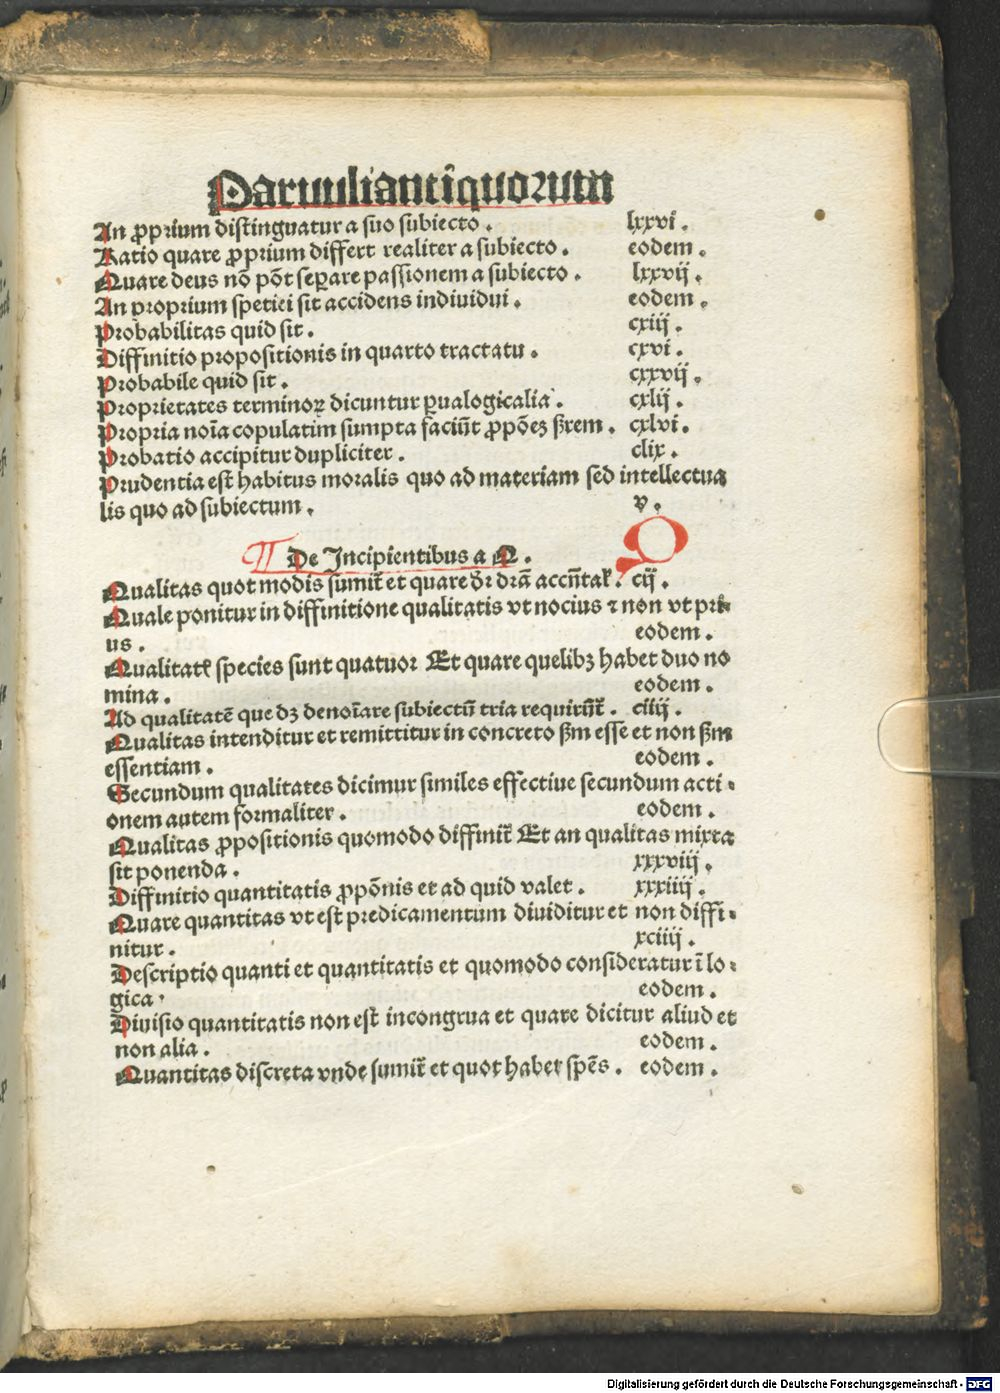 Paruuliantiquorum
An ꝓprium distinguatur a suo subiecto . lxxvi .
Ratio quare ꝓprium differt realiter a subiecto . eodem .
Quare deus nō pōt seꝑare passionem a subiecto . lxxvij .
An proprium speciei sit accidens indiuidui . eodem .
Probabilitas quid sit . cxiij .
Diffinitio propositionis in quarto tractatu . cxvi .
Probabile quid sit . cxxvij .
Proprietates terminoꝝ dicuntur ꝑualogicalia . cxlij .
Propria noīa copulatim sumpta faciūt ꝓpōeꝫ ßrem . cxlvi .
Probatio accipitur dupliciter . clix .
Prudentia est habitus moralis quo ad materiam sed intellectua
lis quo ad subiectum . v .
Q
De Incipientibus a Q .
Qualitas quot modis sumit̄ et quare dr̄ drā accn̄tal̄ . cij .
Quale ponitur in diffinitione qualitatis vt nocius ⁊ non vt pri⸗
us . eodem .
Qualitat̄ species sunt quatuor Et quare quelibꝫ habet duo no
mina . eodem .
Ad qualitatē que dꝫ denoīare subiectū tria requirūt̄ . ciiij .
Qualitas intenditur et remittitur in concreto ßm esse et non ßm
essentiam . eodem .
Secundum qualitates dicimur similes effectiue secundum acti⸗
onem autem formaliter . eodem .
Qualitas ꝓpositionis quomodo diffinit̄ Et an qualitas mixta
sit ponenda . xxxviij .
Diffinitio quantitatis ꝓpōnis et ad quid valet . xxxiiij .
Quare quantitas vt est predicamentum diuiditur et non diffi⸗
nitur . xciiij .
Descriptio quanti et quantitatis et quomodo consideratur ī lo⸗
gica . eodem .
Diuisio quantitatis non est incongrua et quare dicitur aliud et
non alia . eodem .
Quantitas discreta vnde sumit̄ et quot habet spēs . eodem .
Digitalisierung gefördert durch die Deutsche Forschungsgemeinschaft - DFG